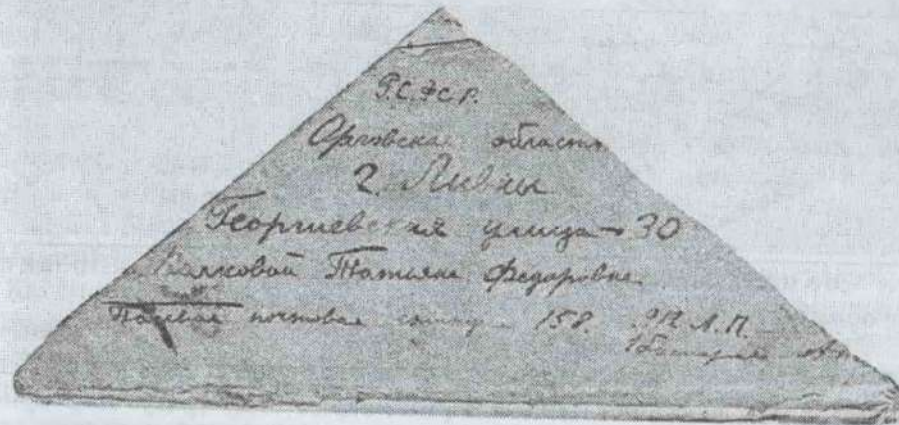 Р.С.Ф.С.Р.
Орловская область
г. Ливны
Георгиевская улица 30
Татьяне Федоровне
Полевая почтовая станция 158.